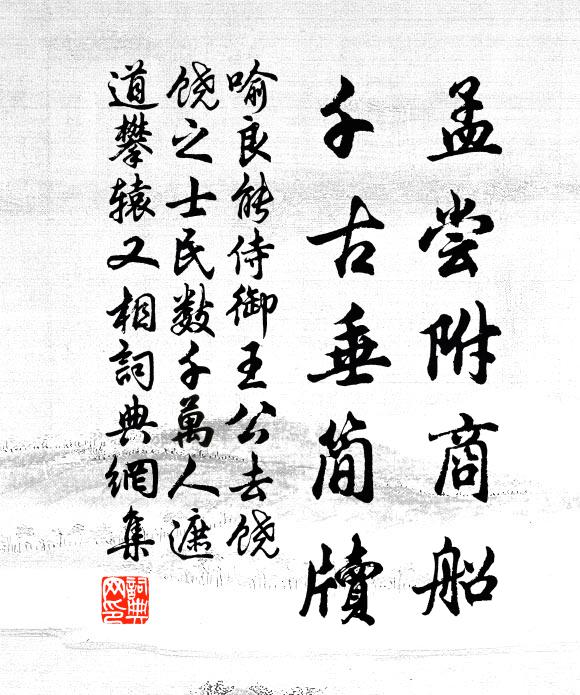 孟尝附商船
千古垂简牍
喻良能侍御王公去饶
饶之士民数千万人遮
道攀辕又相詞典網集
詞典网印